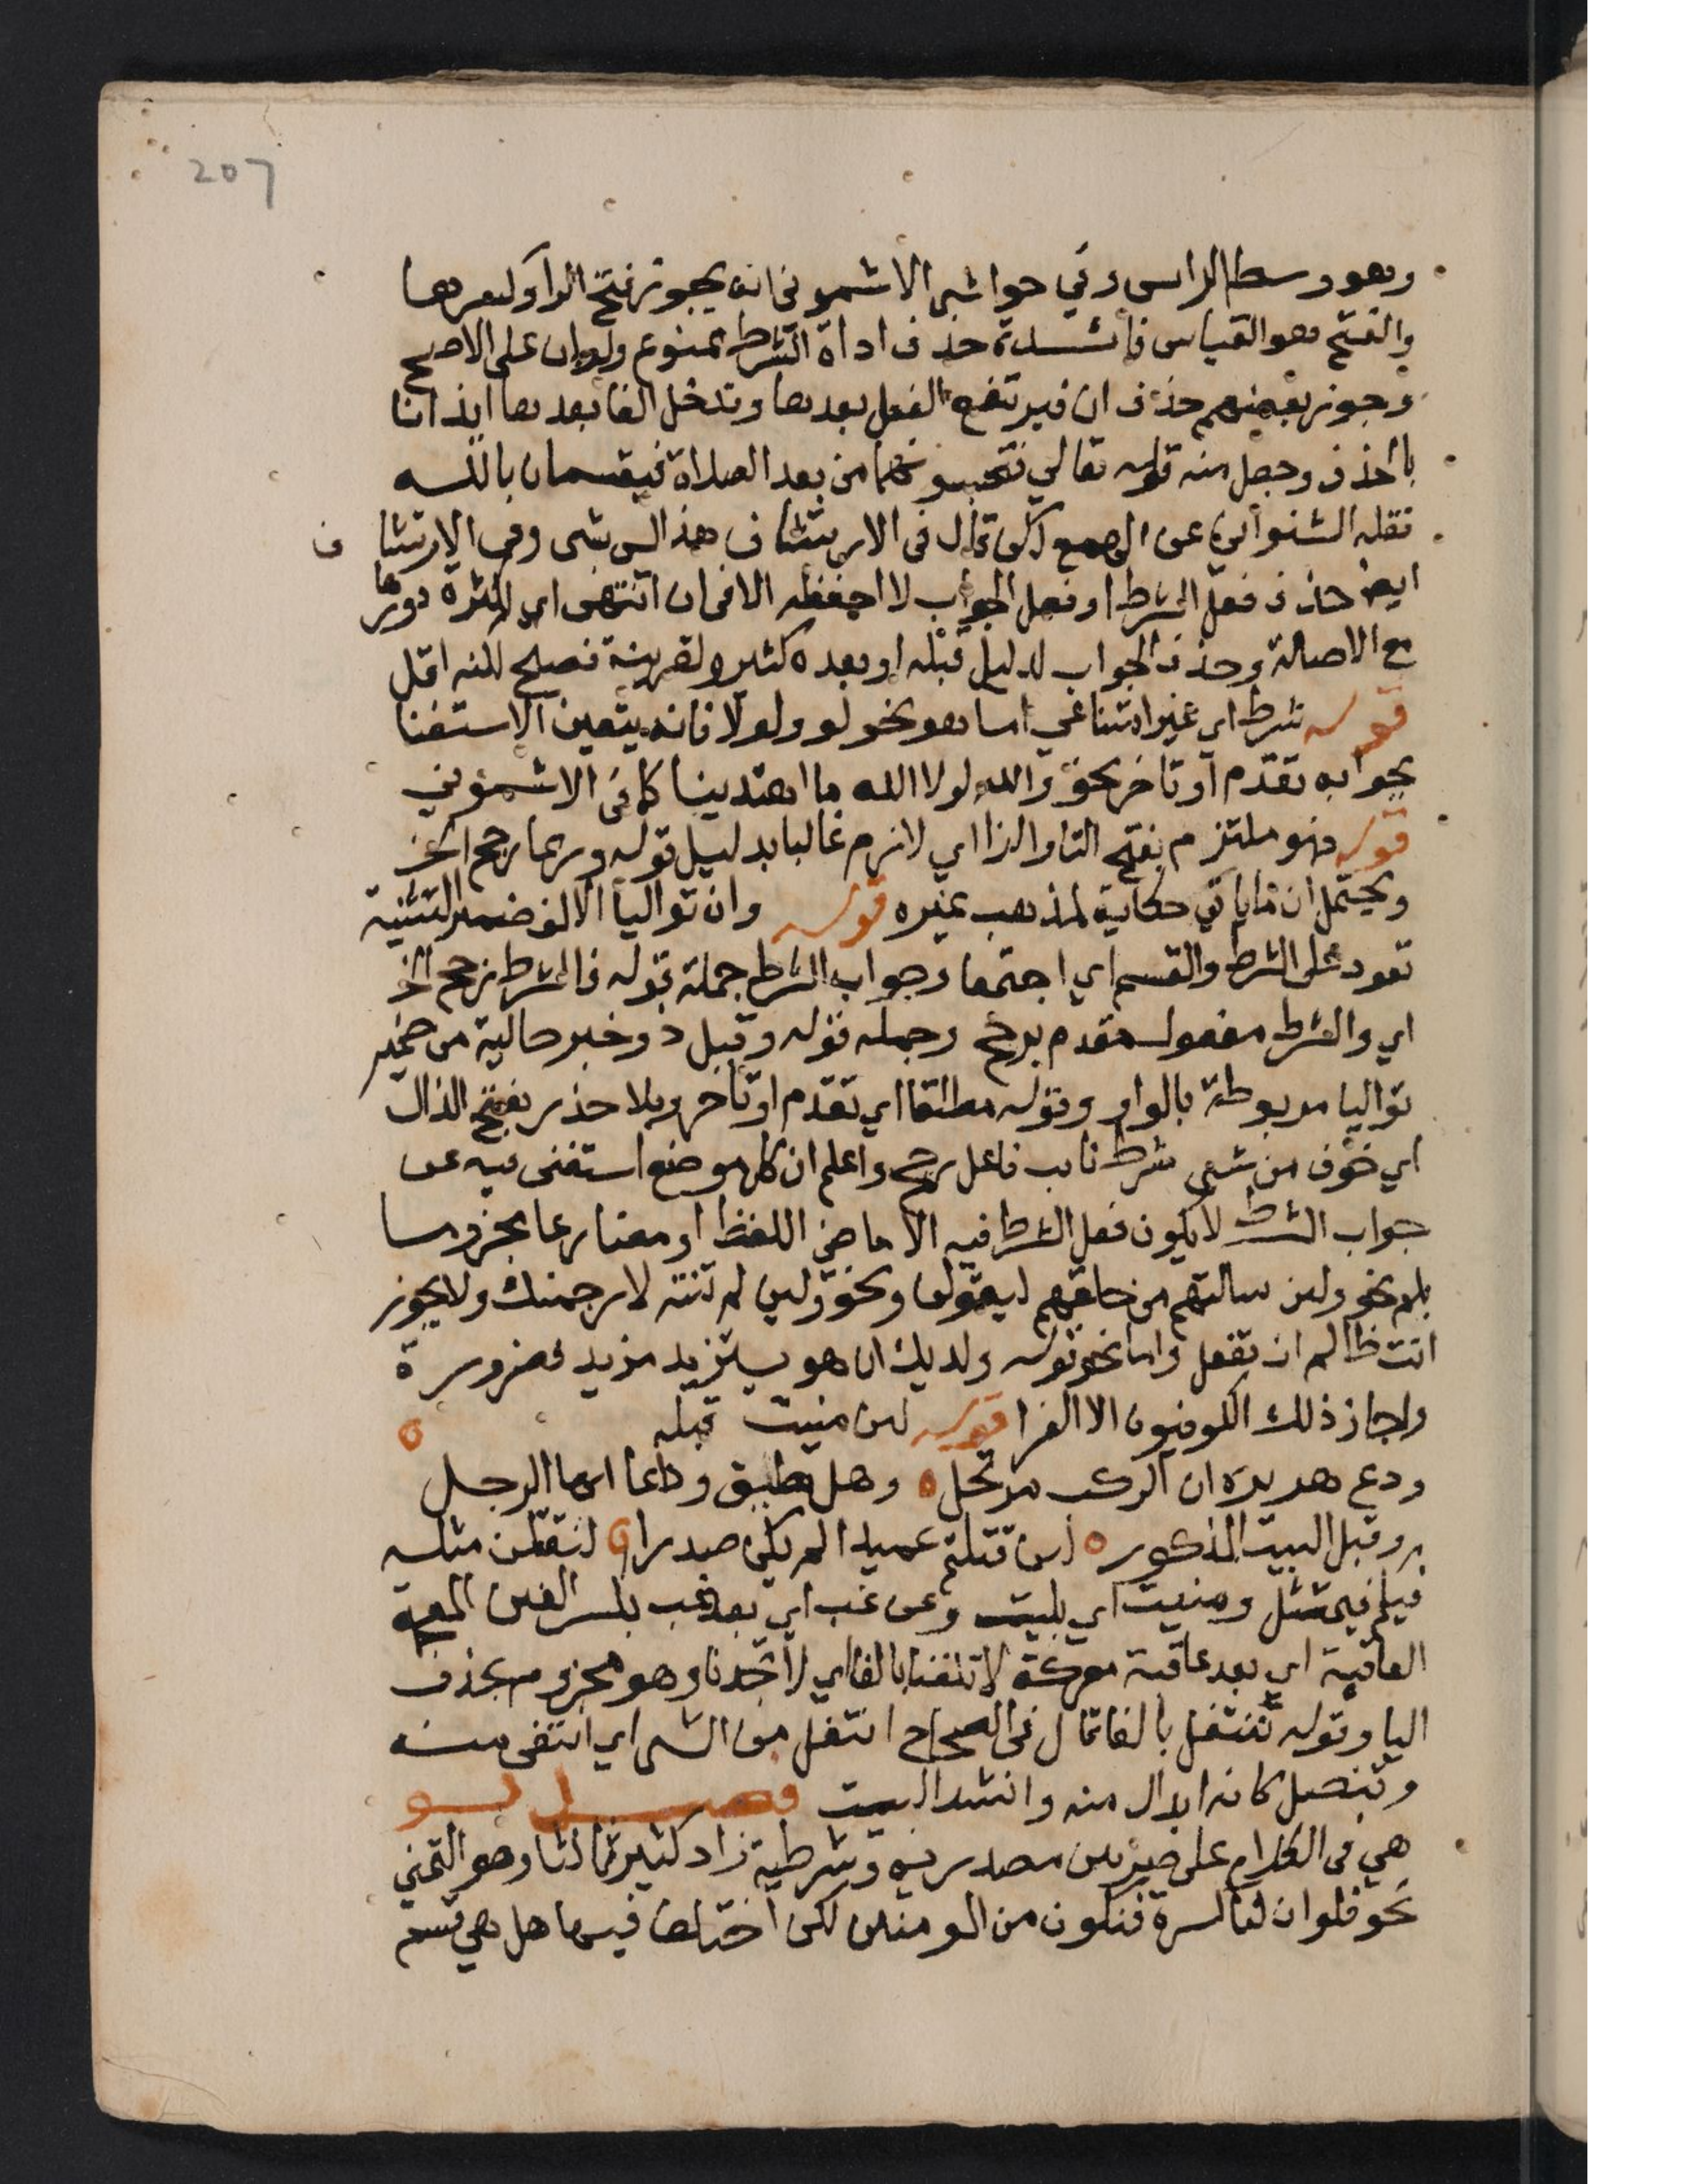 207
وهو وسط الراس وفي حواشي الاشموني انه يجوز فتح الرا وكسرها
والفتح هو القياس فائـــدة حذف اداة الشرط ممنوع ولو ان على الاصح
وجوز بعضهم حذف ان فيرتفع الفعل بعدها وتدخل الفا بعدها ايذانا
بالحذف وجعل منه قوله تعالي تحبسونهما من بعد الصلاة فيقسمان بالله
نقله الشنواني عن الهمع لكن قال في الارتشاف هذا ليس بشي وفي الارتشا ف
ايضا حذف فعل الشرط او فعل الجواب لا احفظه الا في ان انتهى اي لكثرة دورها
مع الاصالة وحذف الجواب لدليل قبله او بعده كثير ولقرينة فصيح لكنه اقل
قوله شرط اي غير امتناعي اما هو نحو لو ولولا فانه يتعين الاستغنا
بجوابه تقدم او تاخر نحو والله لولا الله ما اهتدينا كما في الاشموني
قوله فهو ملتزم بفتح التا والزا اي لازم غالبا بدليل قوله وربما رجح الخ
ويحتمل ان ماياتي حكاية لمذهب غيره قوله وان تواليا الالف ضمير التثنية
تعود على الشرط والقسم اي اجتمعا وجواب الشرط جملة قوله فالشرط رجح الخ
اي والشرط مفعول مقدم برجح وجملة قوله وقبل ذو خبر حالية من ضمير
تواليا مربوطة بالواو وقوله مطلقا اي تقدم او تاخر وبلا حذر بفتح الذال
اي خوف من شي شرط نايب فاعل رجح واعلم ان كل موضع استغنى فيه عن
جواب الشرط لا يكون فعل الشرط فيه الا ماضي اللفظ او مضارعا مجزوما
بلم نحو ولين سالتهم من خلقهم ليقولن ونحو ولين لم تنته لارجمنك ولا يجوز
انت ظالم ان تفعل واما نحو قوله ولديك ان هو يستزيد مزيد فضرورة
واجاز ذلك الكوفيون الا الفرا قوله لين منيت قبله
ودع هريرة ان الركب مرتحل وهل تطيق وداعا ايها الرجل
وقبل البيت المذكور لين قتلتم عميدا لم يكن صددا لنقتلن مثله
فيكم فنمتثل ومنيت اي بليت وعن غب اي بعد غب بكسر الغين المعجمة
العاقبة اي بعد عاقبة معركة لا تلفنا بالفا اي لا تجدنا وهو مجزوم بحذف
اليا وقوله ننتفل بالفا قال في الصحاح انتفل من الشي اي انتفى منه
وتنصل كانه ابدال منه وانشد البيت فصـــل لـــو
هي في الكلام على ضربين مصدرية وشرطية زاد كثير ثالثا وهو التمني
نحو فلو ان لنا كرة فنكون من المومنين لكن اختلف فيها هل هي قسم